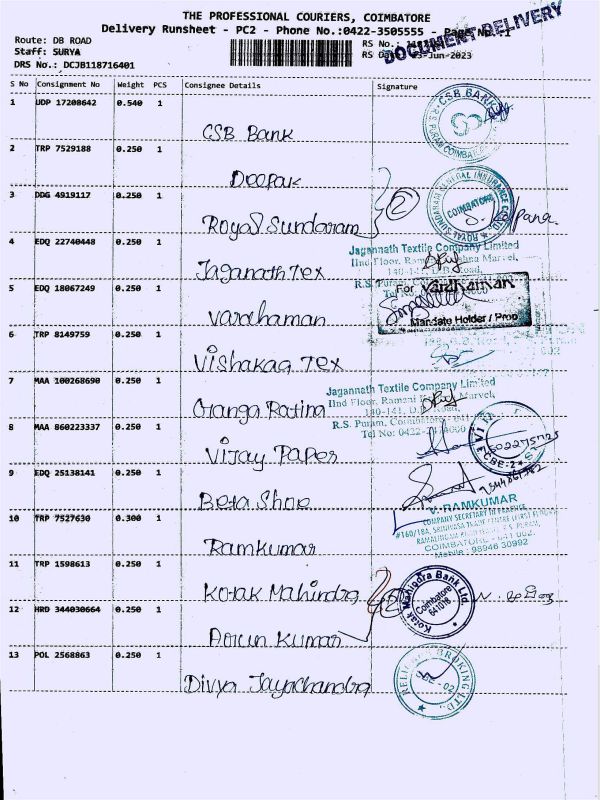 THE PROFESSIONAL COURIERS, COIMBATORE
Delivery Runsheet - PC2 - Phone No.:0422-3505555 - Page No.-1
DOCUMENT DELIVERY
Route: DB ROAD
Staff: SURYA
DRS No.: DCJB118716401
RS No.:
RS Date: 23-Jun-2023
S No Consignment No Weight PCS Consignee Details Signature
1 UDP 17208642 0.540 1
CSB Bank
CSB BANK
R.S. PURAM COIMBATORE
2 TRP 7529188 0.250 1
Deepak
3 DDG 4919117 0.250 1
Royal Sundaram
2
ROYAL SUNDARAM GENERAL INSURANCE CO. LTD
COIMBATORE
S. Kalpana
4 EDQ 22740448 0.250 1
Jaganath Tex
Jagannath Textile Company Limited
IInd Floor, Marvel,
140-141, D.B. Road,
R.S. Puram,
5 EDQ 18067249 0.250 1
Vardhaman
For Vardhaman
Mandate Holder / Prop
6 TRP 8149759 0.250 1
Vishakaa Tex
7 MAA 100268690 0.250 1
Ganga Ratina
Jagannath Textile Company Limited
IInd Floor, Ramani Marvel,
140-141, D.B. Road,
R.S. Puram, Coimbatore
Tel No: 0422-
8 MAA 860223337 0.250 1
Vijay Paper
CBE-2
9 EDQ 25138141 0.250 1
Beta Shoe
10 TRP 7527630 0.300 1
Ramkumar
V. RAMKUMAR
COMPANY SECRETARY IN PRACTICE
#160/18A, SRINIVASA TRADE CENTRE (FIRST FLOOR)
R.S. PURAM,
COIMBATORE - 641 002.
Mobile : 98946 30992
11 TRP 1598613 0.250 1
Kotak Mahindra
2
Kotak Mahindra Bank Ltd.
Coimbatore
641018
12 HRD 344030664 0.250 1
Arun Kumar
13 POL 2568863 0.250 1
Divya Jayachandra
RELIGARE BROKING LTD.
CBE-02